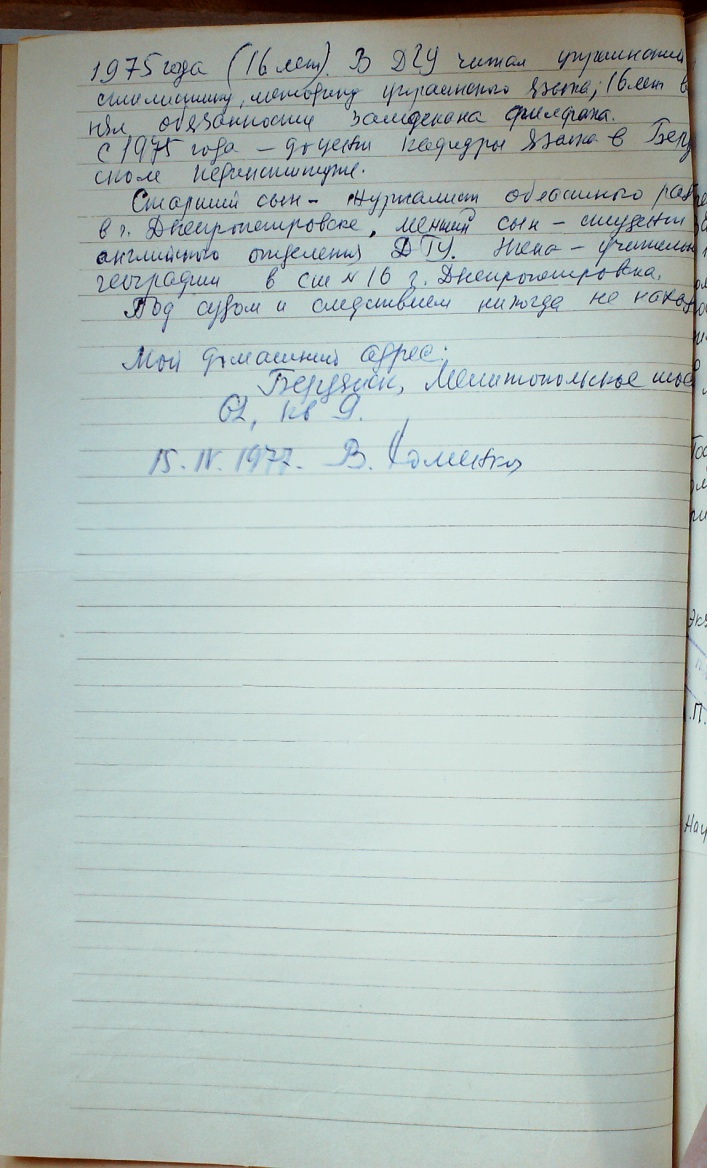 1975 года (16 лет). В ДГУ читал украинскую
стилистику, методику украинского языка; 16 лет в
нял обязанности замдекана филфака.
С 1975 года – доцент кафедры языка в Берд
ском пединституте.
Старший сын – журналист областного рад
в г. Днепропетровске, менший сын – студент
английского отделения ДГУ. Жена – учитель
географии в сш № 16 г. Днепропетровска.
Под судом и следствием никогда не наход
Мой домашний адрес:
Бердянск, Мелитопольское шос
62, кв 9.
15.IV.1977. В.